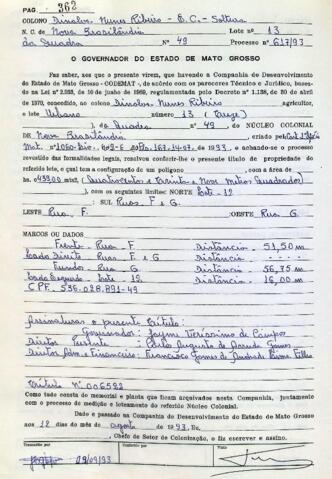 PAG. 362
COLONO Dinalva Nunes Ribeiro - E.C. - Solteira
N. C. de Nova Brasilândia LOTE nº 13
da Quadra Nº 49 Processo nº 617/93
O GOVERNADOR DO ESTADO DE MATO GROSSO
Faz saber, aos que o presente virem, que havendo a Companhia de Desenvolvimento
do Estado de Mato Grosso - CODEMAT -, de acordo com os pareceres Técnico e Jurídico, baseados
na Lei nº 2.933, de 10 de junho de 1969, regulamentada pelo Decreto nº 1.138, de 30 de abril
de 1970, concedido, ao colono Dinalva Nunes Ribeiro agricultor,
o lote Urbano número 13 (Treze)
da Quadra nº 49, DO NÚCLEO COLONIAL
DE Nova Brasilândia, criado pela
Mat. nº de 1993 e achando-se o processo
revestido das formalidades legais, resolveu conferir-lhe o presente título de propriedade do
referido lote, o qual tem a configuração de um polígono com a área de
(Quatrocentos e Trinta e Nove Metros Quadrados)
com os seguintes limites: NORTE Lote - 12
SUL Ruas F e G
LESTE Rua F. OESTE Rua G.
MARCOS OU DADOS
Frente - Rua - F Distância 51,50 m
Lado Direito - Ruas F e G Distância
Fundos - Rua G Distância 56,75 m
Lado Esquerdo - Lote - 12 Distância 16,00 m
CPF. 536.028.891-49
Assinaturas o presente Título:
Governador: Jayme Veríssimo de Campos
Diretor Presidente - Carlos Augusto de Arruda Gomes
Diretor Adm. e Financeiro: Francisco Gomes de Andrade Lima Filho
Título Nº 006582
Como tudo consta do memorial e planta que ficam arquivados nesta Companhia, juntamente
com o processo de medição e loteamento do referido Núcleo Colonial.
Dado e passado na Companhia de Desenvolvimento do Estado de Mato Grosso
aos 12 dias do mês agosto de 1993. Eu,
, Chefe do Setor de Colonização, o fiz escrever e assino.
Transcrito por Conferido por Visto
09/09/93